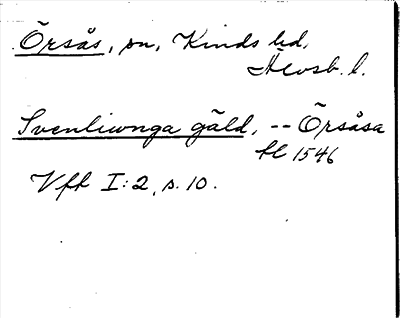 Örsås, sn, Kinds hd,
Älvsb. l.
Svenliunga gäld, -- Örsåsa
1546
Vfh I:2, s. 10.